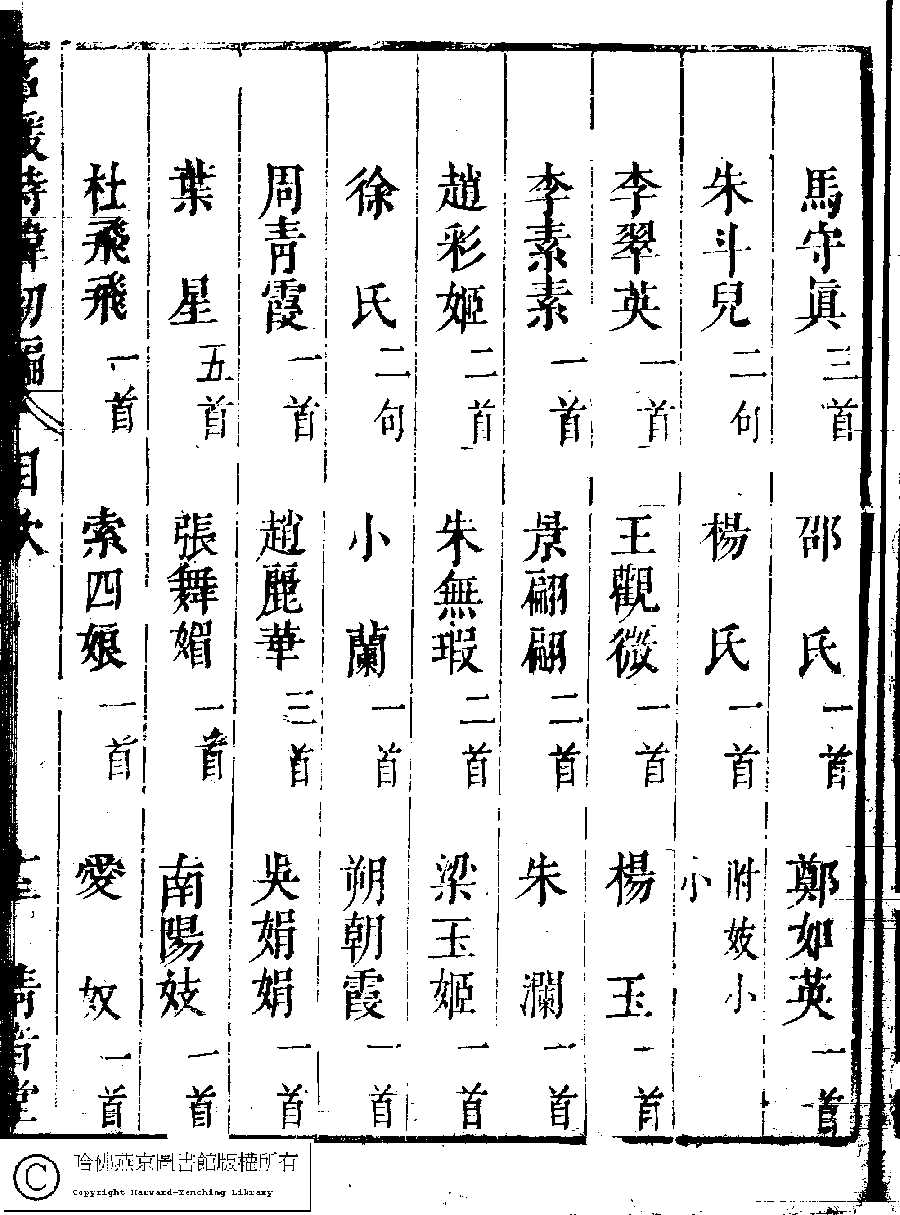 馬守眞 三首 邵氏 一首 鄭如英 一首
朱斗兒 二句 楊氏 一首 附妓小
小
李翠英 一首 王觀微 一首 楊玉 一首
李素素 一首 景翩翩 二首 朱瀾 一首
趙彩姬 二首 朱無瑕 二首 梁玉姬 一首
徐氏 二句 小蘭 一首 朔朝霞 一首
周青霞 一首 趙麗華 三首 吳娟娟 一首
葉星 五首 張舞媚 一首 南陽妓 一首
杜飛飛 一首 索四娘 一首 愛奴 一首
名媛詩緯初編 目次 清音堂
哈佛燕京圖書館版權所有
Copyright Harvard-Yenching Library